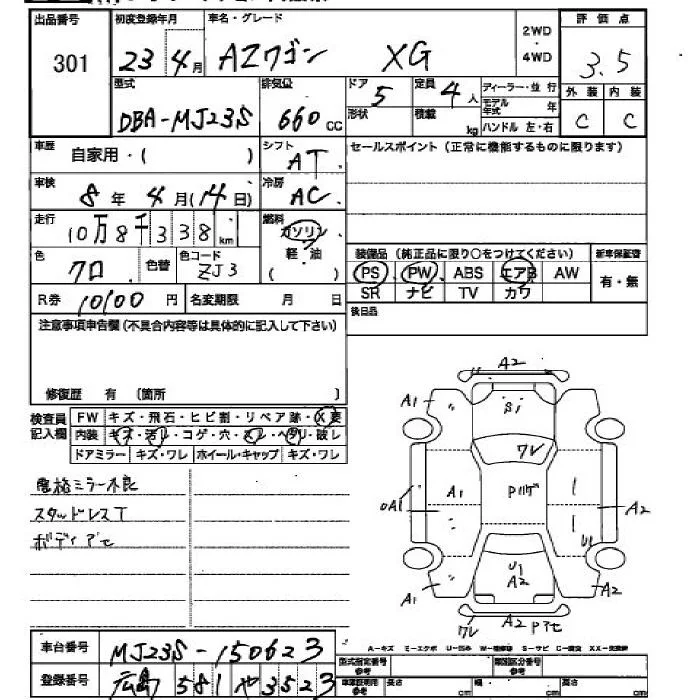 出品番号 初度登録年月 車名・グレード 2WD・4WD 評価点
301 23年4月 AZワゴン XG 3.5
型式 排気量 ドア 定員 ディーラー・並行 外装 内装
DBA-MJ23S 660CC 5 4人 モデル年式 年 C C
形状 積載 kg ハンドル 左・右
車歴 自家用・( ) シフト AT セールスポイント(正常に機能するものに限ります)
車検 8年4月(14日) 冷房 AC
走行 10万8千338km 燃料 ガソリン 軽・油 ( )
色 クロ 色替 色コード ZJ3
装備品(純正品に限り○をつけてください) 新車保証書
PS PW ABS エアB AW 有・無
SR ナビ TV カワ
R券 10100円 名変期限 月 日 後日品
注意事項申告欄(不具合内容等は具体的に記入して下さい)
修復歴 有 〔箇所 〕
検査員記入欄 FW キズ・飛石・ヒビ割・リペア跡・X要
内装 キズ・汚レ・コゲ・穴・スレ・ヘタリ・破レ
ドアミラー キズ・ワレ ホイール・キャップ キズ・ワレ
ミラー不良
スタッドレスT
ボディアセ
A2
A1 S1
ワレ
A1 Pハゲ
0A1 A2
U1 U1
A2
A1 A2
ワレ A2 Pアセ
車台番号 MJ23S-150623
A-キズ ミ-エクボ U-凹み W-補修跡 S-サビ C-腐食 XX-交換跡
型式指定番号 参考 類別区分番号 参考
登録番号 広島 581 や 3523
車庫証明用 参考 長さ cm 幅 cm 高さ cm